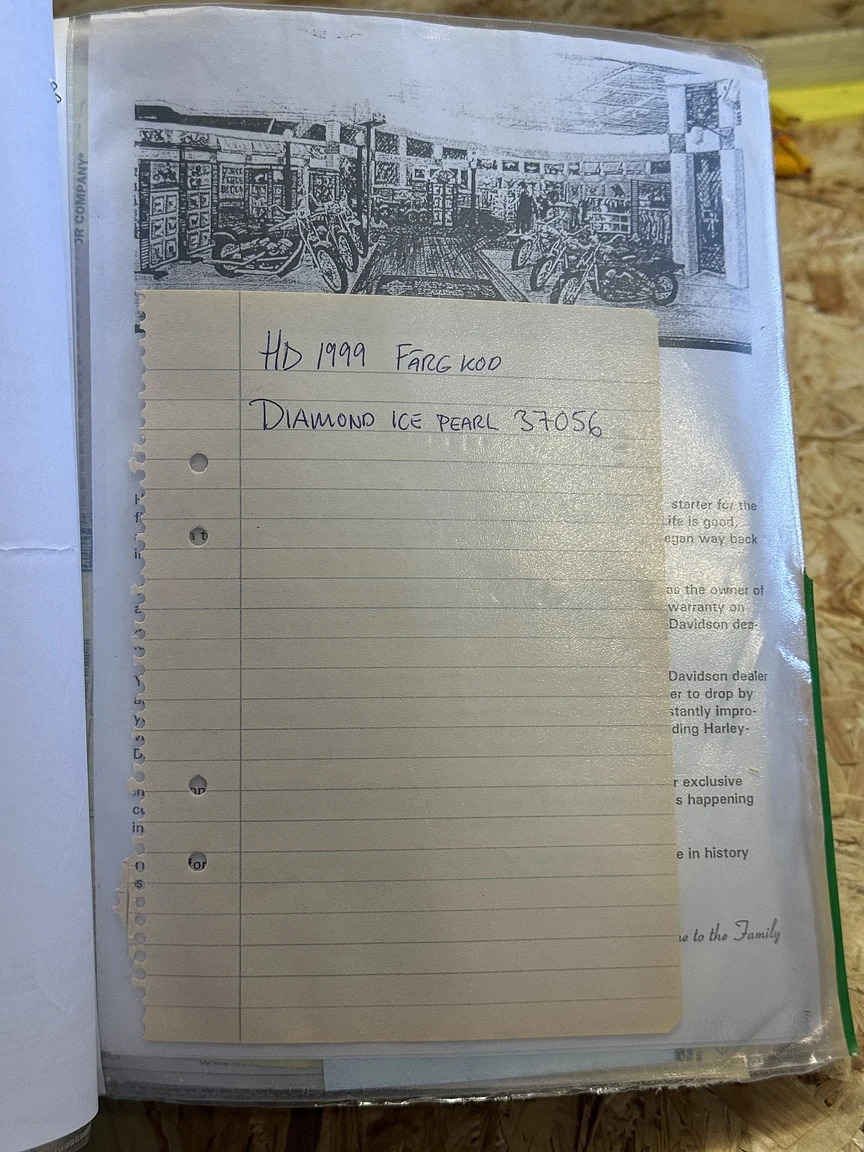 JR COMPANY®
HD 1999 FÄRG KOD
DIAMOND ICE PEARL 37056
starter for the
ife is good,
egan way back
as the owner of
warranty on
Davidson dea-
Davidson dealer
er to drop by
stantly impro-
ding Harley-
r exclusive
s happening
for
e in history
ne to the Family